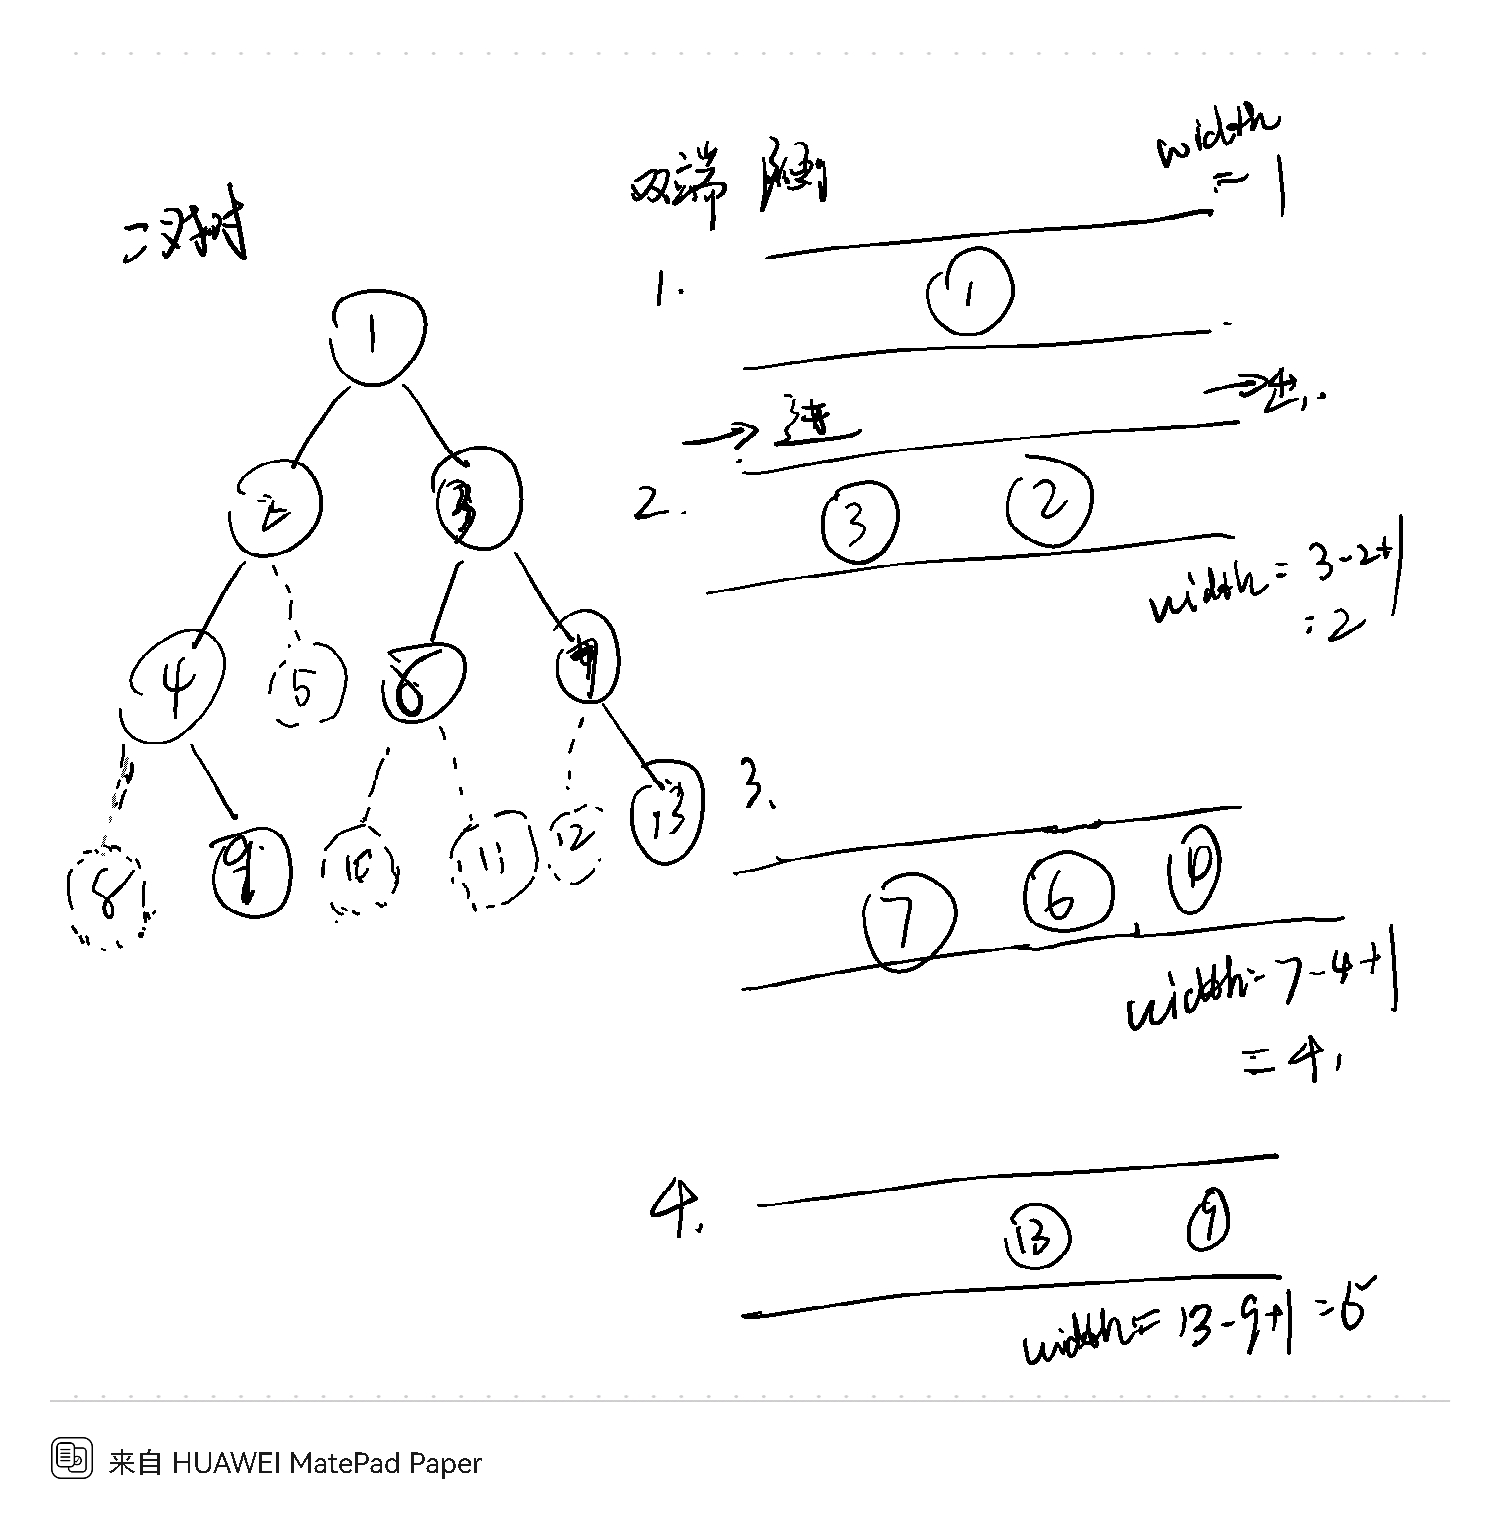 二叉树
1
2
3
4
5
6
7
8
9
10
11
12
13
双端
width
= 1
1.
1
→ 进
→ 出.
2.
3 2
width = 3-2+1
= 2
3.
7 6 10
width = 7-4+1
= 4.
4.
13 9
width = 13-9+1 = 5
来自 HUAWEI MatePad Paper